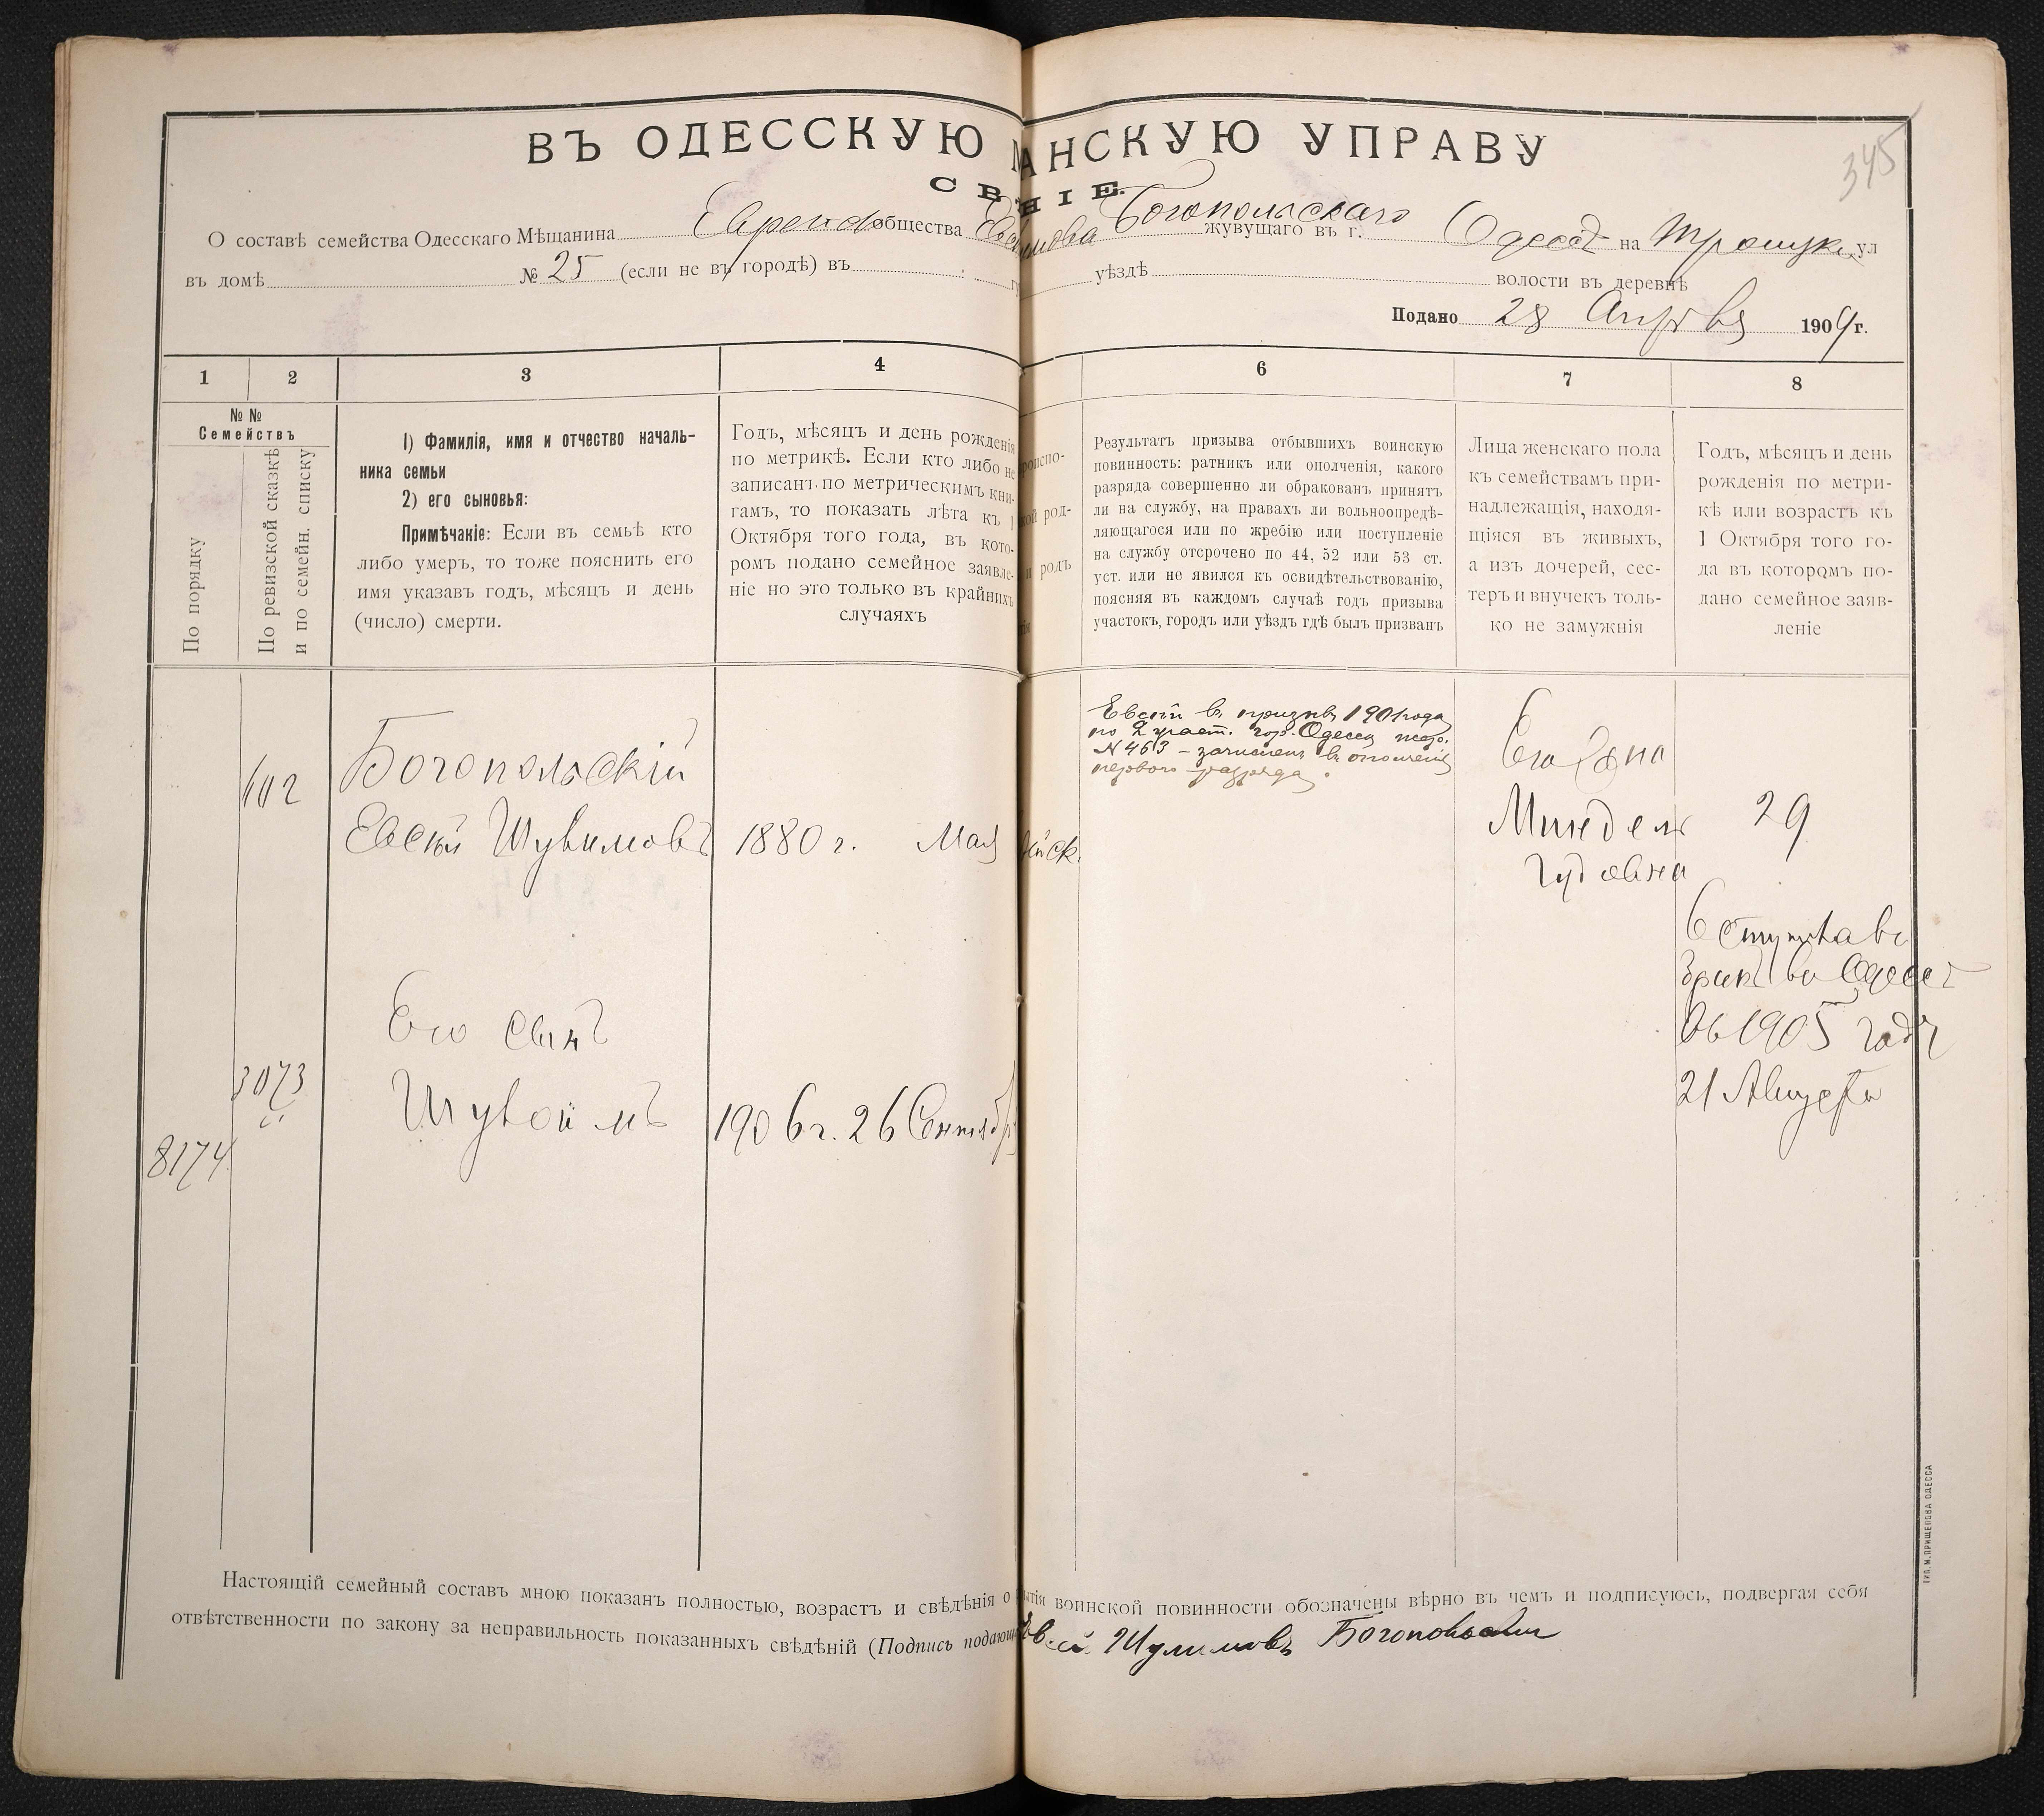 345
ВЪ ОДЕССКУЮ АНСКУЮ УПРАВУ
СВ НІЕ.
О составѣ семейства Одесскаго Мѣщанина общества Богопольскаго жувущаго въ г. Одессѣ на Троицк. ул
въ домѣ № 25 (если не въ городѣ) въ уѣздѣ волости въ деревнѣ
Подано 28 190 г.
1 2 3 4 6 7 8
№ №
Семействъ
По порядку
По ревизской сказкѣ
и по семейн. списку
1) Фамилія, имя и отчество началь-
ника семьи
2) его сыновья:
Примѣчаніе: Если въ семьѣ кто
либо умеръ, то тоже пояснить его
имя указавъ годъ, мѣсяцъ и день
(число) смерти.
Годъ, мѣсяцъ и день рожденія
по метрикѣ. Если кто либо не
записанъ по метрическимъ кни-
гамъ, то показать лѣта къ 1
Октября того года, въ кото-
ромъ подано семейное заявле-
ніе но это только въ крайнихъ
случаяхъ
роиспо-
кой род-
и родъ
Результатъ призыва отбывшихъ воинскую
повинность: ратникъ или ополченія, какого
разряда совершенно ли обракованъ принятъ
ли на службу, на правахъ ли вольноопредѣ-
ляющагося или по жребію или поступленіе
на службу отсрочено по 44, 52 или 53 ст.
уст. или не явился къ освидѣтельствованію,
поясняя въ каждомъ случаѣ годъ призыва
участокъ, городъ или уѣздъ гдѣ былъ призванъ
Лица женскаго пола
къ семействамъ при-
надлежащія, находя-
щіяся въ живыхъ,
а изъ дочерей, сес-
теръ и внучекъ толь-
ко не замужнія
Годъ, мѣсяцъ и день
рожденія по метри-
кѣ или возрастъ къ
1 Октября того го-
да въ которомъ по-
дано семейное заяв-
леніе
Богопольскій
Евсѣй Шувимовъ 1880 г. Мая
Евсѣй въ призывъ 1901 года
по 2 участ. гор. Одессы жер.
N 463 – зачисленъ въ ополченіе
перваго разряда.
Его жена
Миндель 29
Вступилъ въ
бракъ въ Одессѣ
въ 1905 году
21 Августа
Его сынъ
3073
Шувоимъ 1906 г. 26 Сентябр
8174
Настоящій семейный составъ мною показанъ полностью, возрастъ и свѣдѣнія о бытія воинской повинности обозначены вѣрно въ чемъ и подписуюсь, подвергая себя
отвѣтственности по закону за неправильность показанныхъ свѣдѣній (Подпись подающа Богопольскій
ТИП. М. ПРИЩЕПОВА ОДЕССА